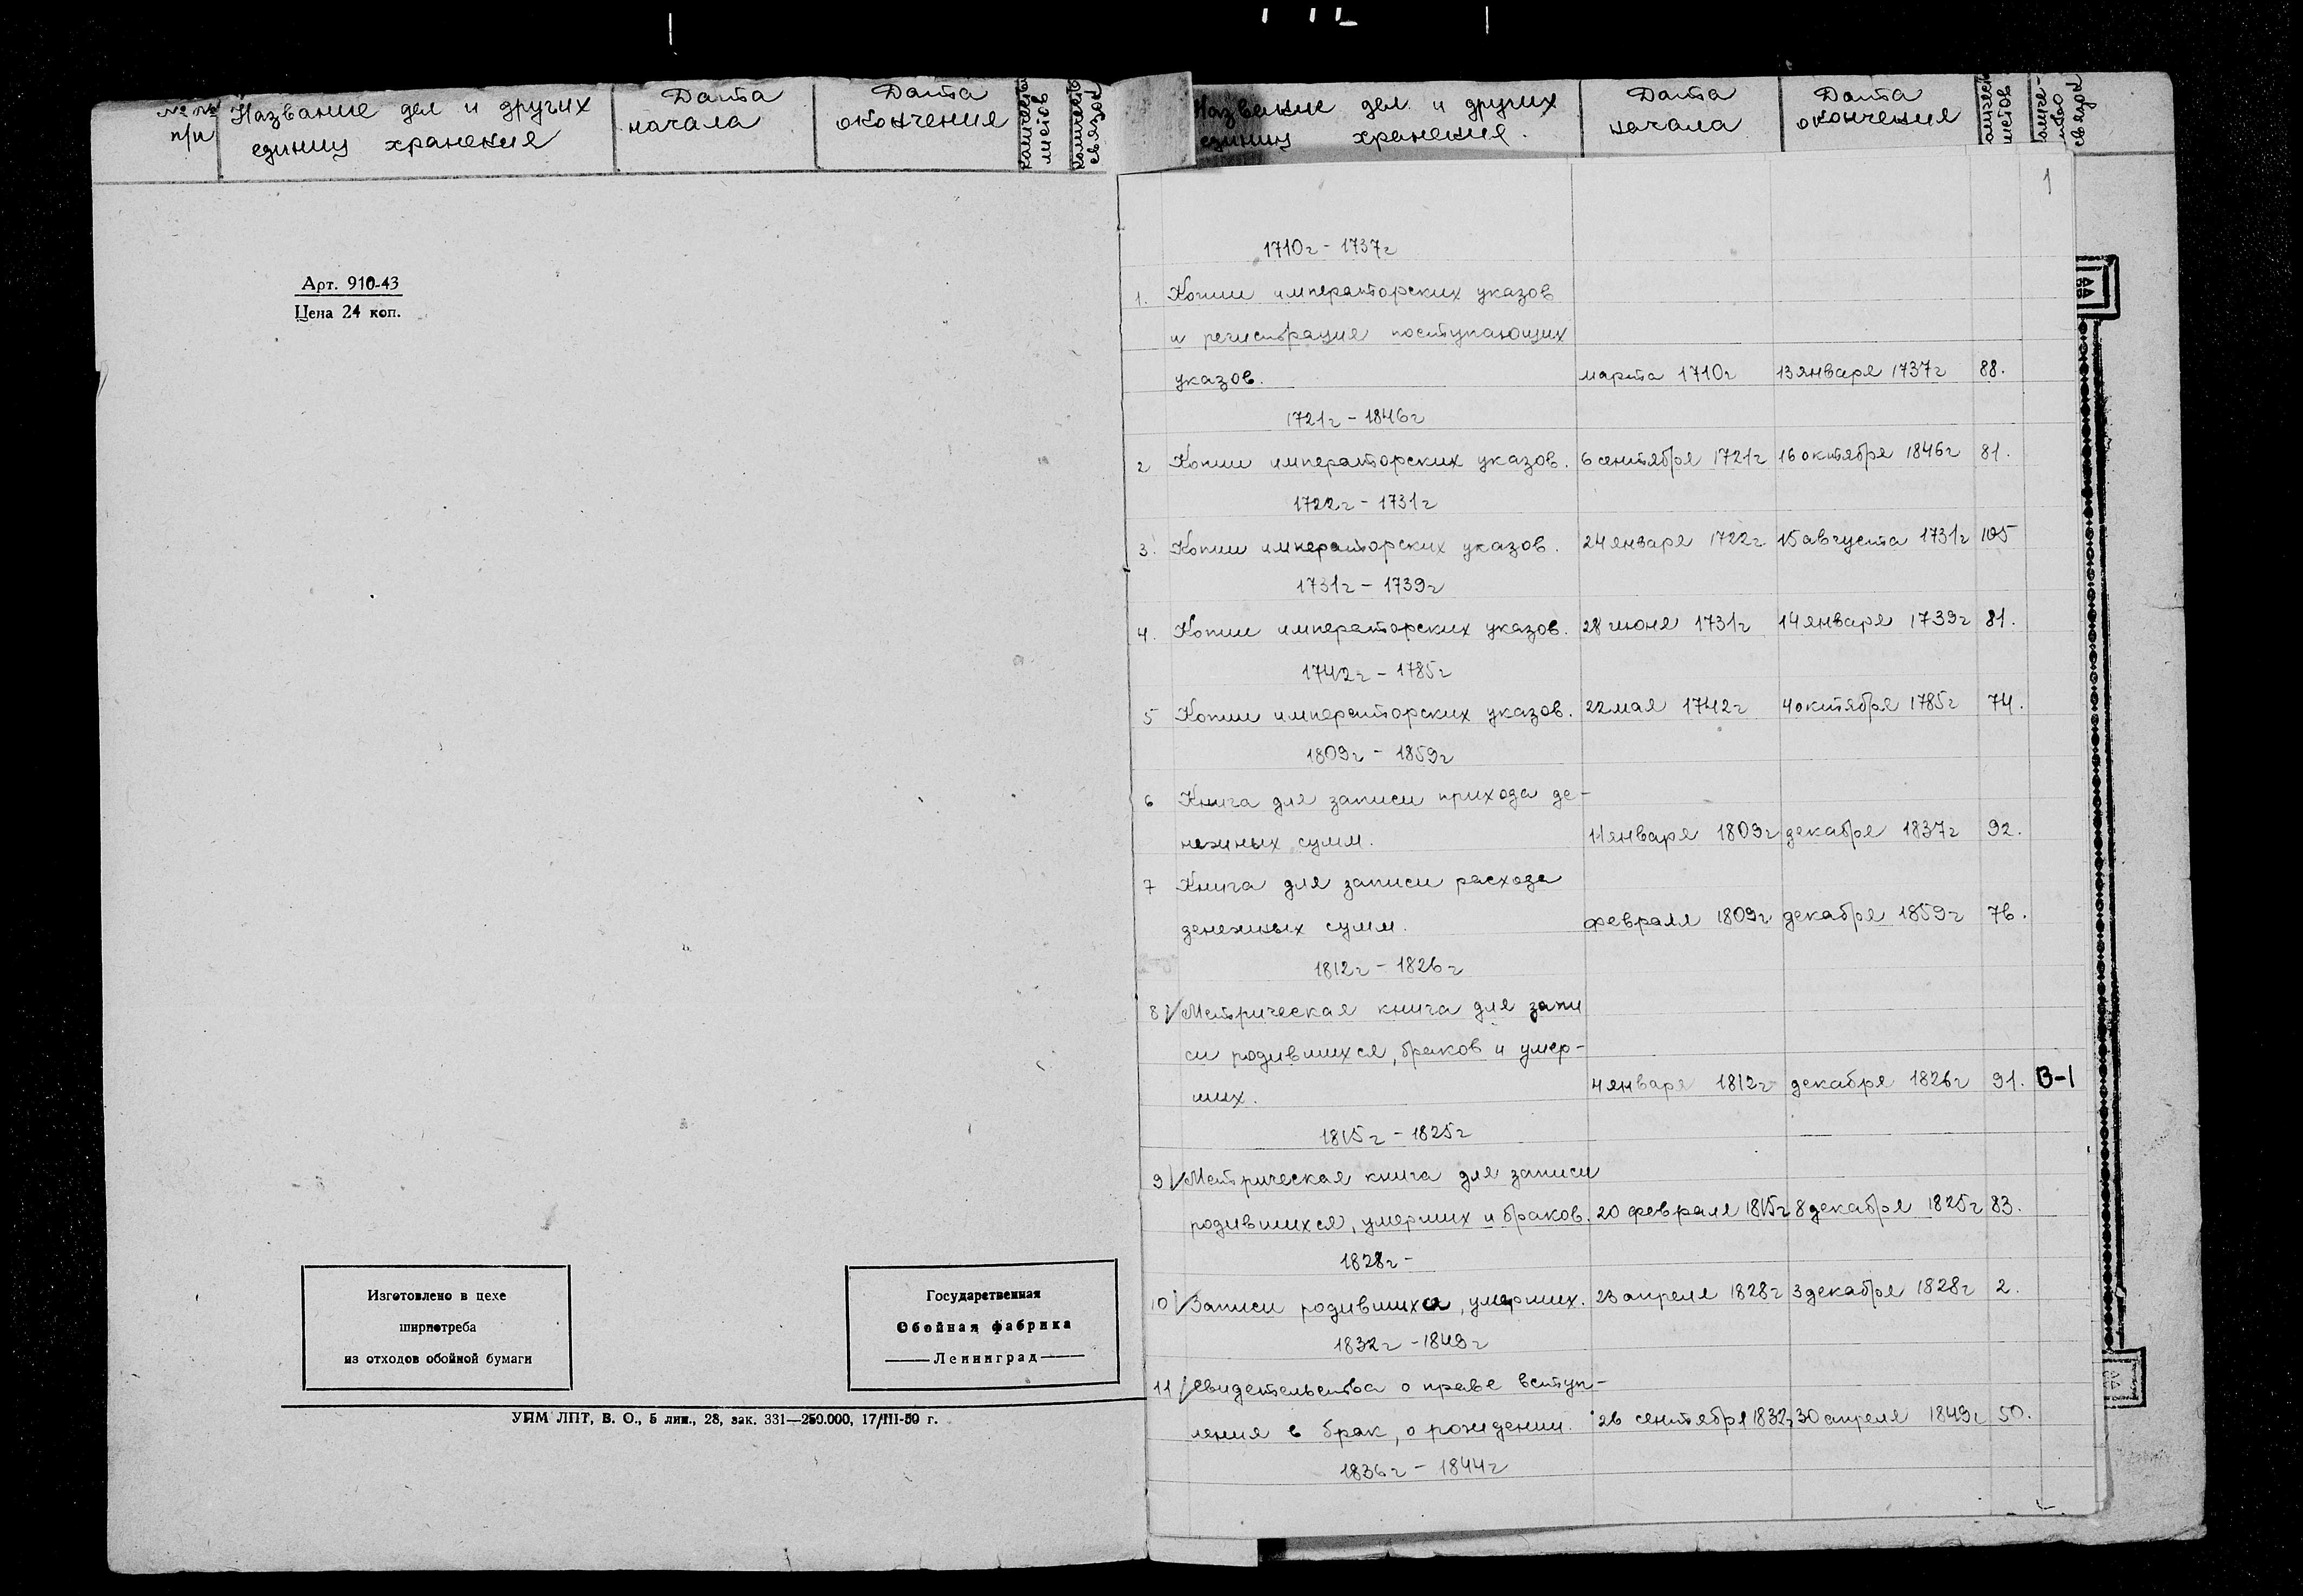 № №
п/п
Название дел и других
единиц хранения
Дата
начала
Дата
окончения
количество
листов
количество
связок
Арт. 910-43
Цена 24 коп.
Изготовлено в цехе
ширпотреба
из отходов обойной бумаги
Государственная
Обойная фабрика
Ленинград
УПМ ЛПТ, В. О., 5 лин., 28, зак. 331—250.000, 17/III-50 г.
Название дел и других
единиц хранения.
Дата
начала
Дата
окончения
листов
связок
1
1710г - 1737г
1. Копии императорских указов
и регистрация поступающих
указов. марта 1710г 13 января 1737г 88.
1721г - 1846г
2 Копии императорских указов. 6 сентября 1721г 16 октября 1846г 81.
1722г - 1731г
3. Копии императорских указов. 24 января 1722г 15 августа 1731г 105
1731г - 1739г
4. Копии императорских указов. 28 июня 1731г 14 января 1739г 81.
1742г - 1785г
5 Копии императорских указов. 22 мая 1742г 4 октября 1785г 74.
1809г - 1859г
6 Книга для записи прихода де-
нежных сумм. 11 января 1809г декабря 1837г 92.
7 Книга для записи расхода
денежных сумм. февраля 1809г декабря 1859г 76.
1812г - 1826г
8 Метрическая книга для запи
си родившихся, браков и умер-
ших. 4 января 1812г декабря 1826г 91. В-1
1815г - 1825г
9 Метрическая книга для записи
родившихся, умерших и браков. 20 февраля 1815г 8 декабря 1825г 83.
1828г -
10 Записи родившихся, умерших. 23 апреля 1828г 3 декабря 1828г 2.
1832г - 1849г
11 Свидетельства о праве вступ-
ления в брак, о рождении. 26 сентября 1832г 30 апреля 1849г 50.
1836г - 1844г